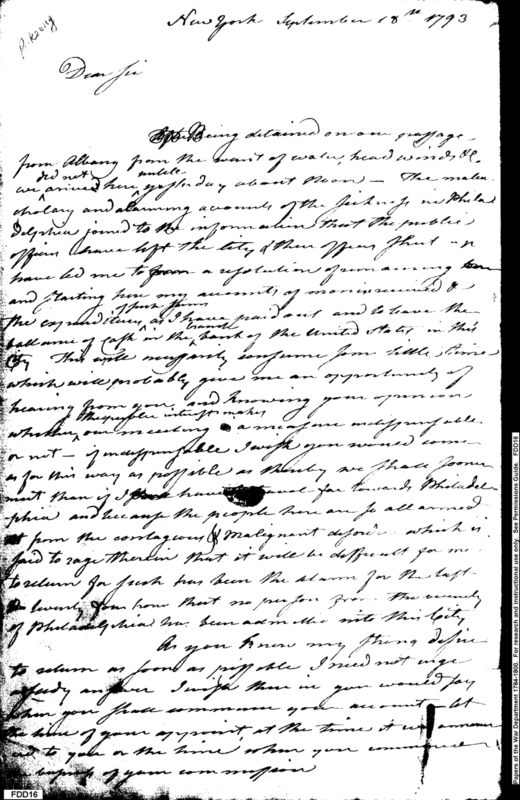 P. Hagg
New York September 18th 1793
Dear Sir
Being detained on our passage
from Albany from the want of water, head winds &c.
did not untill
we arrived here yesterday about Noon - The melan
cholary and alarming accounts of the sickness in Phila
delphia joined to the information that the public
officers have left the City & their offices shut up
have led me to form a resolution of remaining
and stating here my accounts of monies received &
the expenditures, as I have paid out and to leave the
ballance of Cash in the branch bank of the United States in this
City This will necessarily consume some little time
which will probably give me an opportunity of
hearing from you, and knowing your opinion
the public interest makes
whether our meeting a measure indispensable
or not - if indispensable I wish you would come
as far this way as possible as thereby we shall sooner
meet than if I have travel far towards Philadel
phia and because the people here are so all armed
from the contagious & Malignant disorder which is
said to rage therein that it will be difficult for me
to return for such has been the alarm for the last
twenty four hours that no person from the vicinity
of Philadelphia has been admitted into this City
As you know my strong desire
to return as soon as possible I need not urge
a speedy answer I wish therein you would say
when you shall commence your account - let
the time of your appoint, at the time it was announ
ced to you or the time when you commenced
the business of your commission
FDD16
Papers of the War Department 1784-1800. For research and instructional use only. See Permissions Guide. FDD16